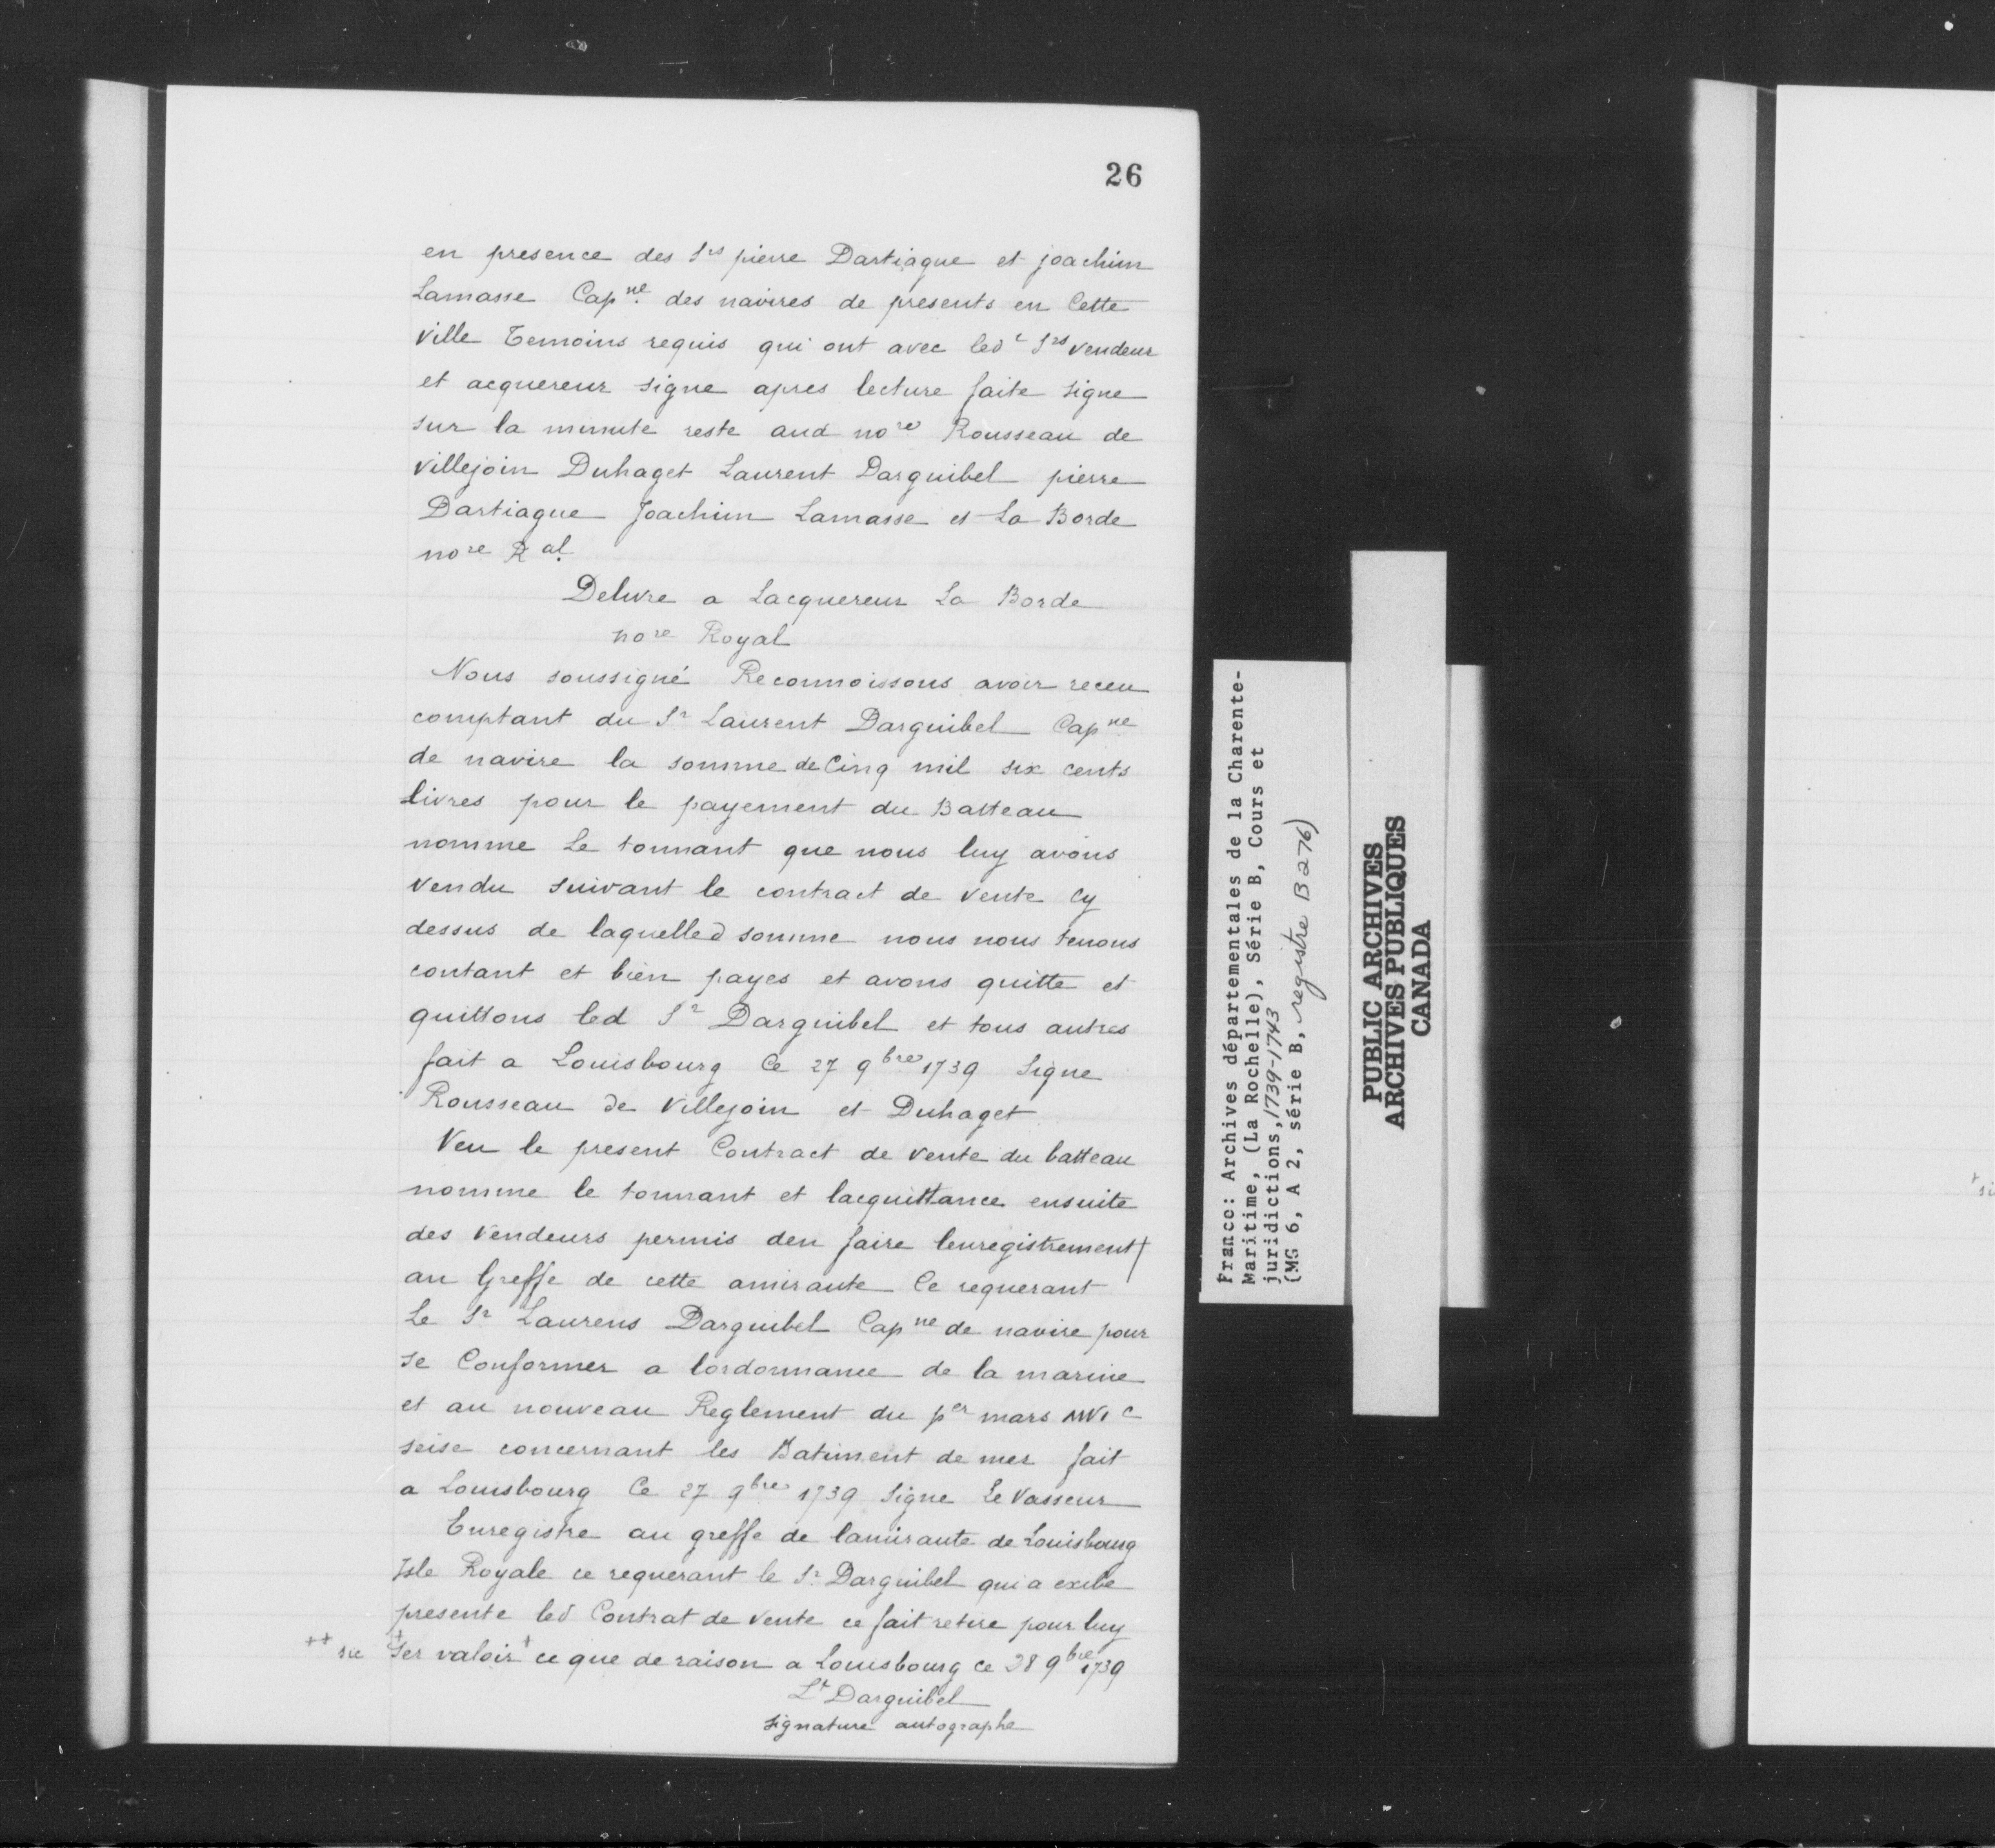 26
en presence des Srs pierre Dartiague et joachim
Lamasse Capne. des navires de presents en Cette
ville Temoins requis qui ont avec led Srs vendeur
et acquereur signe apres lecture faite signe
sur la minute reste aud nore Rousseau de
villejoin Duhaget Laurent Darguibel pierre
Dartiague Joachim Lamasse et La Borde
nore Ral.
Delivre a Lacquereur La Borde
nore Royal
Nous soussigné Reconnoissons avoir receu
comptant du Sr Laurent Darguibel Capne
de navire la somme de Cinq mil six cents
livres pour le payement du Batteau
nomme Le tonnant que nous luy avons
vendu suivant le contract de vente Cy
dessus de laquelled somme nous nous tenons
contant et bien payes et avons quitte et
quittons led Sr Darguibel et tous autres
fait a Louisbourg Ce 27 9bre 1739 Signe
Rousseau de Villejoin et Duhaget
Veu le present Contract de vente du batteau
nomme le tonnant et lacquittance ensuite
des vendeurs permis den faire lenregistrement
au Greffe de cette amiraute Ce requerant
Le Sr Laurens Darguibel Capne de navire pour
se Conformer a lordonnance de la marine
et au nouveau Reglement du per mars MVIc
seise concernant les Batiment de mer fait
a Louisbourg Ce 27 9bre 1739 Signe Le Vasseur
Enregistre au greffe de lamiraute de Louisbourg
Isle Royale ce requerant le Sr Darguibel qui a exibe
presente led Contrat de vente ce fait retire pour luy
++ sic +ser valoir+ ce que de raison a Louisbourg ce 28 9bre 1739
Lt Darguibel
signature autographe
France: Archives départementales de la Charente-
Maritime, (La Rochelle), Série B, Cours et
juridictions, 1739-1743
(MG 6, A 2, série B, registre B 276)
PUBLIC ARCHIVES
ARCHIVES PUBLIQUES
CANADA